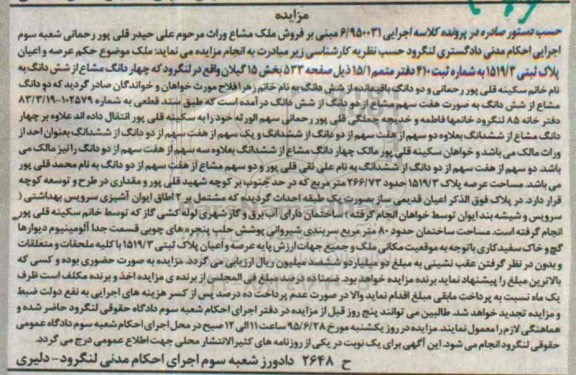 مزایده
حسب دستور صادره در پرونده کلاسه اجرایی ۶/۹۵۰۰۳۱ مبنی بر فروش ملک مشاع وراث مرحوم علی حیدر قلی پور رحمانی شعبه سوم
اجرایی احکام مدنی دادگستری لنگرود حسب نظریه کارشناسی زیر مبادرت به انجام مزایده می نماید: ملک موضوع حکم عرصه و اعیان
پلاک ثبتی ۱۵۱۹/۳ به شماره ثبت ۴۱۰ دفتر متمم ۱۵/۱ ذیل صفحه ۵۳۳ بخش ۱۵ گیلان واقع در لنگرود که چهار دانگ مشاع از شش دانگ به
نام خانم سکینه قلی پور رحمانی و دو دانگ باقیمانده از شش دانگ به نام خانم زهرا فلاح مورث خواهان و خواندگان صادر گردید که دو دانگ
مشاع از شش دانگ به صورت هفت سهم مشاع از دو دانگ از شش دانگ درآمده است که طبق سند قطعی به شماره ۱۰۲۵۷۹-۸۳/۳/۱۹
دفتر خانه ۸۵ لنگرود خانمها فاطمه و خدیجه جملگی قلی پور رحمانی سهم الورثه خود را به سکینه قلی پور انتقال داده اند علاوه بر چهار
دانگ مشاع از ششدانگ بعلاوه دو سهم از هفت سهم از دو دانگ از ششدانگ و یک سهم از هفت سهم از دو دانگ از ششدانگ بعنوان احد از
وراث مالک می باشد و خواهان سکینه قلی پور مالک چهار دانگ مشاع از ششدانگ بعلاوه سه سهم از هفت سهم از دو دانگ را نیز مالک می
باشد. دو سهم از هفت سهم از دو دانگ از ششدانگ به نام علی تقی قلی پور و دو سهم مشاع از هفت سهم از دو دانگ به نام محمد قلی پور
می باشد. مساحت عرصه پلاک ۱۵۱۹/۳ حدود ۲۶۶/۷۳ متر مربع که در حد جنوب بر کوچه شهید قلی پور و مقداری در طرح و توسعه کوچه
قرار دارد. در پلاک فوق الذکر اعیان قدیمی ساز بصورت یک طبقه احداث گردیده که مشتمل بر ۲ اطاق ایوان آشپزی سرویس بهداشتی (
سرویس و شیشه بند ایوان توسط خواهان انجام گرفته) ساختمان دارای آب برق و گاز شهری لوله کشی گاز که توسط خانم سکینه قلی پور
انجام گرفته است. مساحت ساختمان حدود ۸۰ متر مربع سربندی شیروانی پوشش حلب پنجره های چوبی قسمت جدا آلومینیوم دیوارها
گچ و خاک سفیدکاری باتوجه به موقعیت مکانی ملک و جمیع جهات ارزش پایه عرصه و اعیان پلاک ثبتی ۱۵۱۹/۳ با کلیه ملحقات و متعلقات
و بدون در نظر گرفتن عقب نشینی به مبلغ دو میلیارد و ششصد میلیون ریال ارزیابی می گردد. مزایده به صورت حضوری بوده و کسی که
بالاترین مبلغ را پیشنهاد نماید برنده مزایده خواهد بود. ضمنا ده درصد مبلغ فی المجلس از برنده ی مزایده اخذ و برنده مکلف است ظرف
یک ماه نسبت به پرداخت مابقی مبلغ اقدام نماید والا در صورت عدم پرداخت ده درصد پس از کسر هزینه های اجرایی به نفع دولت ضبط
و مزایده تجدید خواهد شد. طالبین می توانند پنج روز قبل از مزایده در دفتر اجرای احکام شعبه سوم دادگاه حقوقی لنگرود حاضر شده و
هماهنگی لازم را معمول نمایند. مزایده در روز یکشنبه مورخ ۹۵/۶/۲۸ ساعت ۱۱ الی ۱۲ صبح در محل اجرای احکام شعبه سوم دادگاه عمومی
حقوقی لنگرود انجام می شود. این آگهی برای یک نوبت در یکی از روزنامه های کثیرالانتشار محلی جهت اطلاع عمومی درج می گردد.
ح ۲۶۴۸ دادورز شعبه سوم اجرای احکام مدنی لنگرود- دلیری